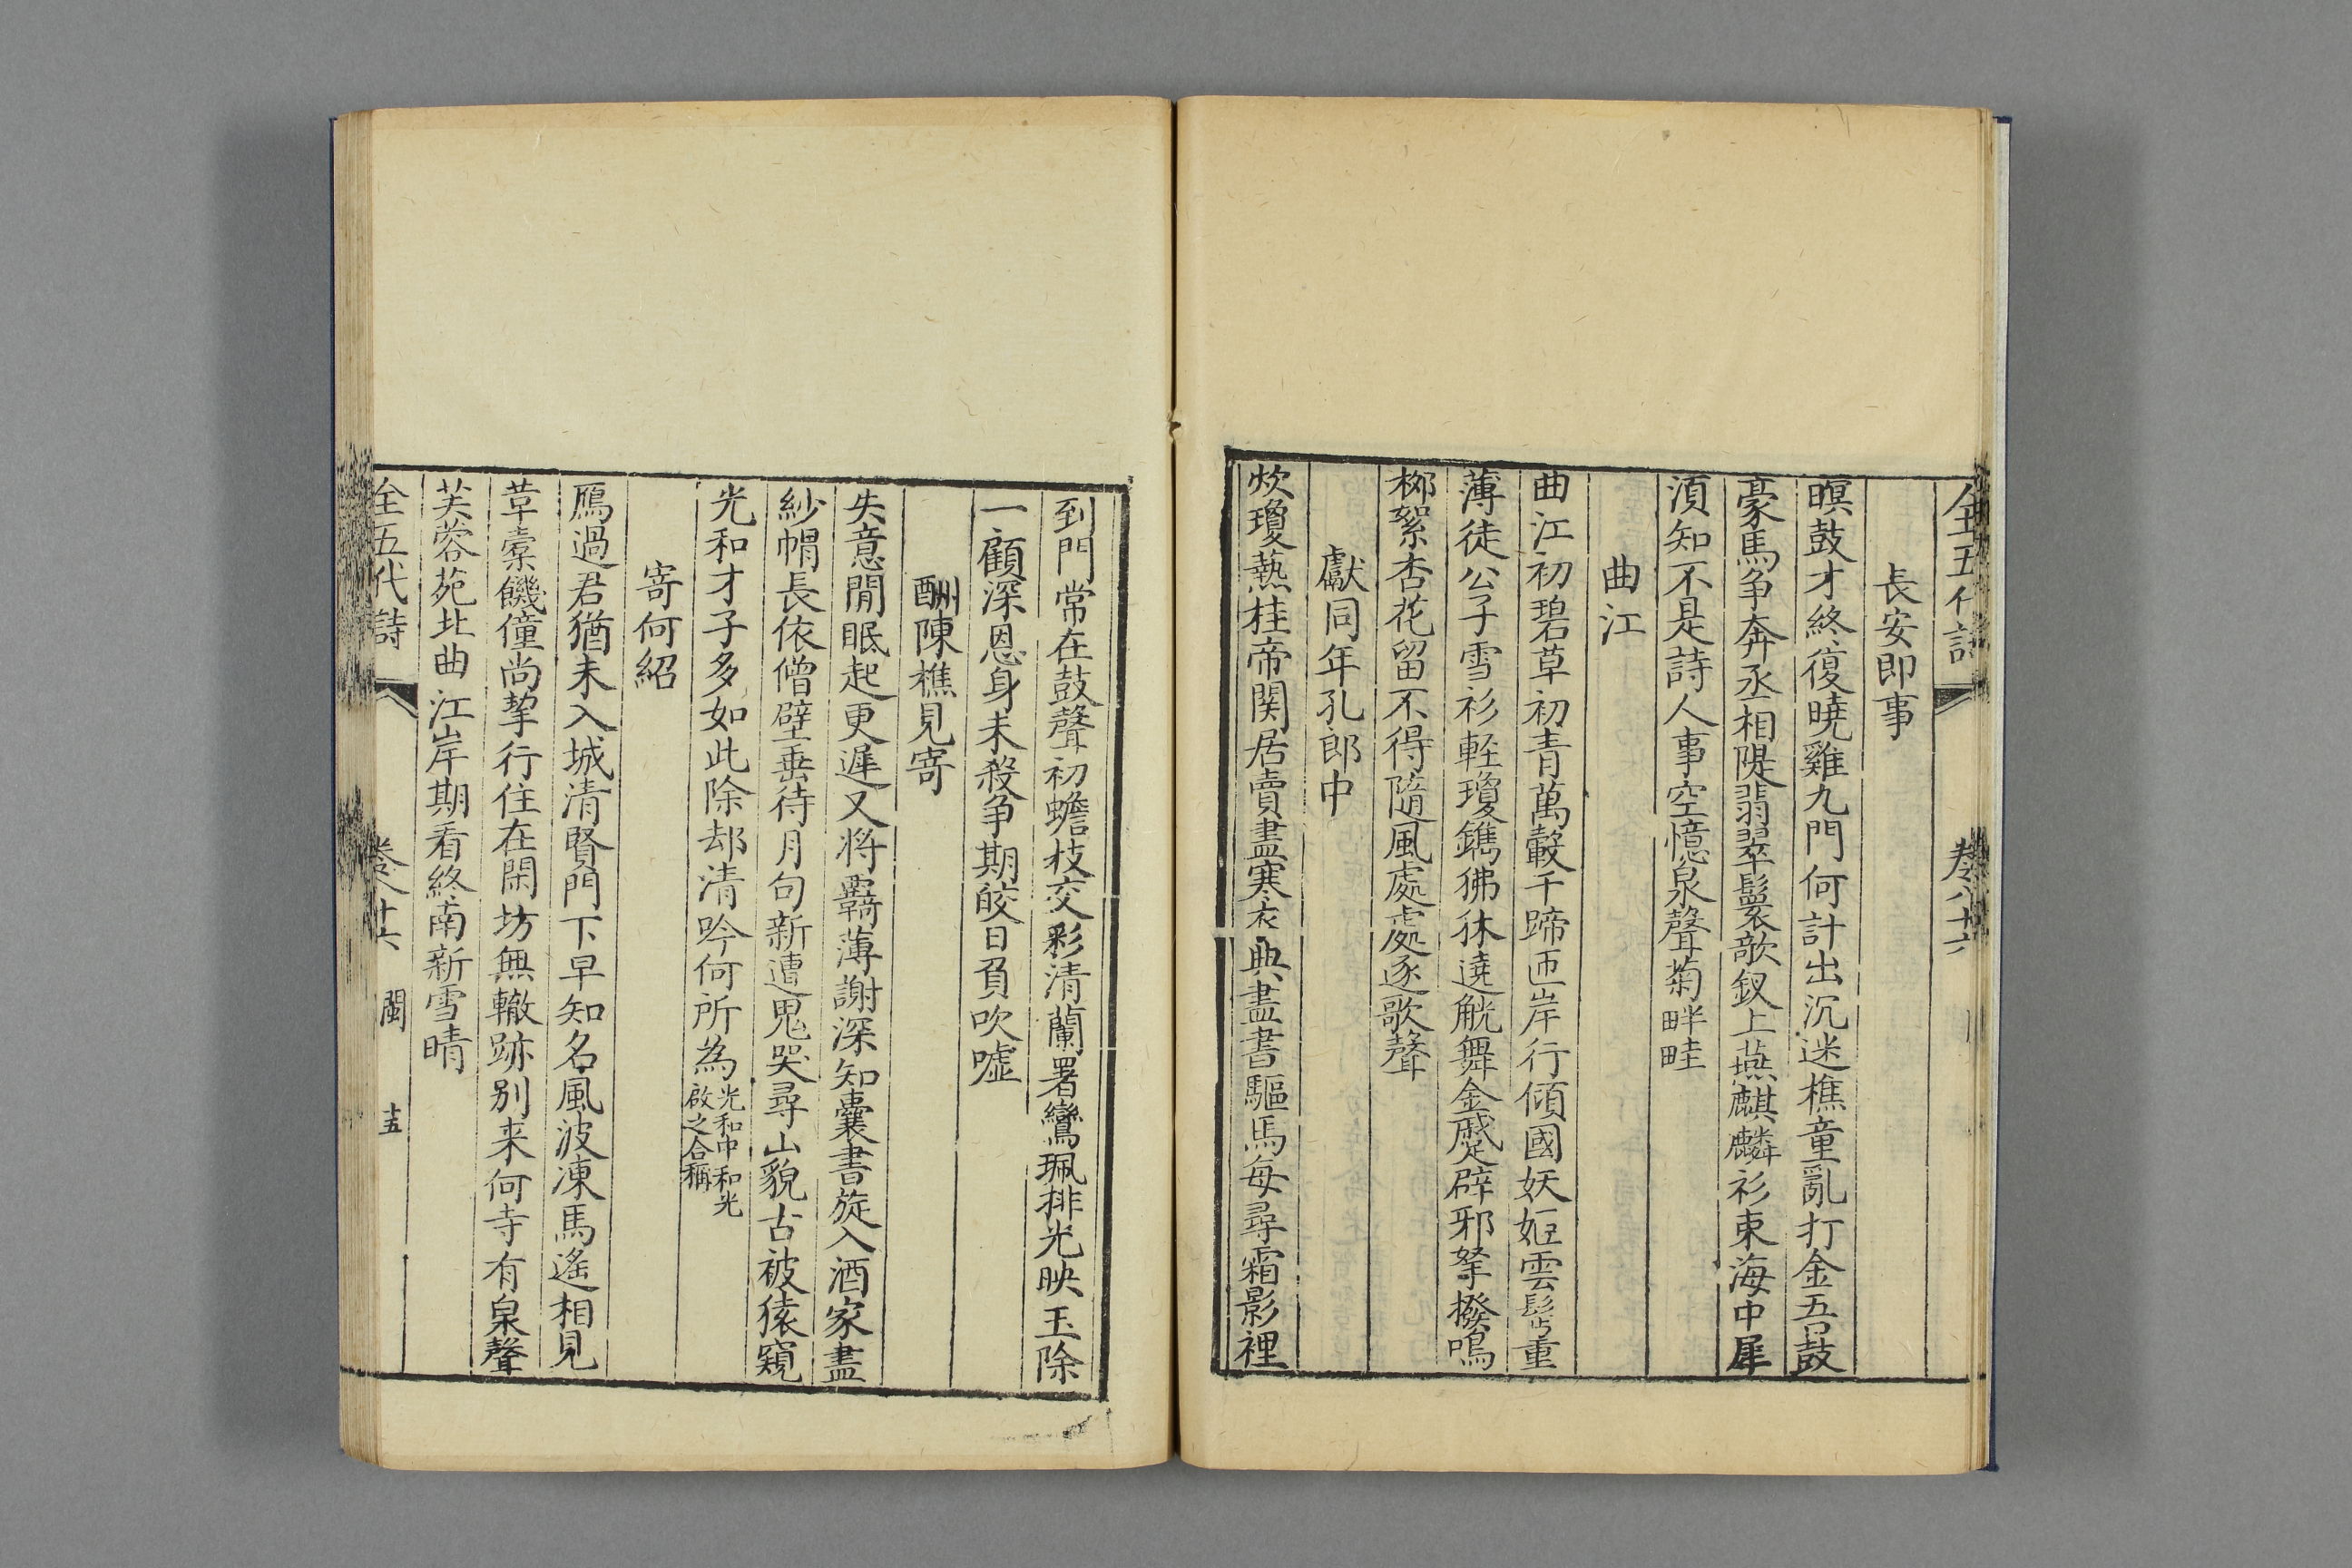 全五代詩 卷八十六
長安即事
暝鼓才終復曉雞九門何計出沉迷樵童亂打金吾鼓
豪馬争奔丞相隄翡翠鬟欹釵上燕麒麟衫束海中犀
湏知不是詩人事空憶泉聲菊畔畦
曲江
曲江初碧草初青萬轂千蹄匝岸行傾國妖姬雲髻重
薄徒公子雪衫輊瓊鐫狒狖遶觥舞金蹙辟邪拏撥鳴
栁絮杏花留不得隨風處處逐歌聲
獻同年孔郎中
炊瓊爇桂帝関居賣盡寒衣典盡書驅馬每尋霜影裡
到門常在鼓聲初蟾枝交彩清蘭署鸞珮排光映玉除
一顧深恩身未殺争期皎日負吹噓
酬陳樵見寄
失意閒眠起更遲又将羇薄謝深知囊書旋入酒家盡
紗帽長依僧壁垂待月句新遭鬼哭尋山貌古被猿窺
光和才子多如此除却清吟何所為光和中和光啟之合稱
寄何紹
鴈過君猶未入城清賢門下早知名風波凍馬遙相見
草橐饑僮尚挈行住在閑坊無轍跡别来何寺有泉聲
芙蓉苑北曲江岸期看終南新雪晴
全五代詩 卷八十六 閩 十五